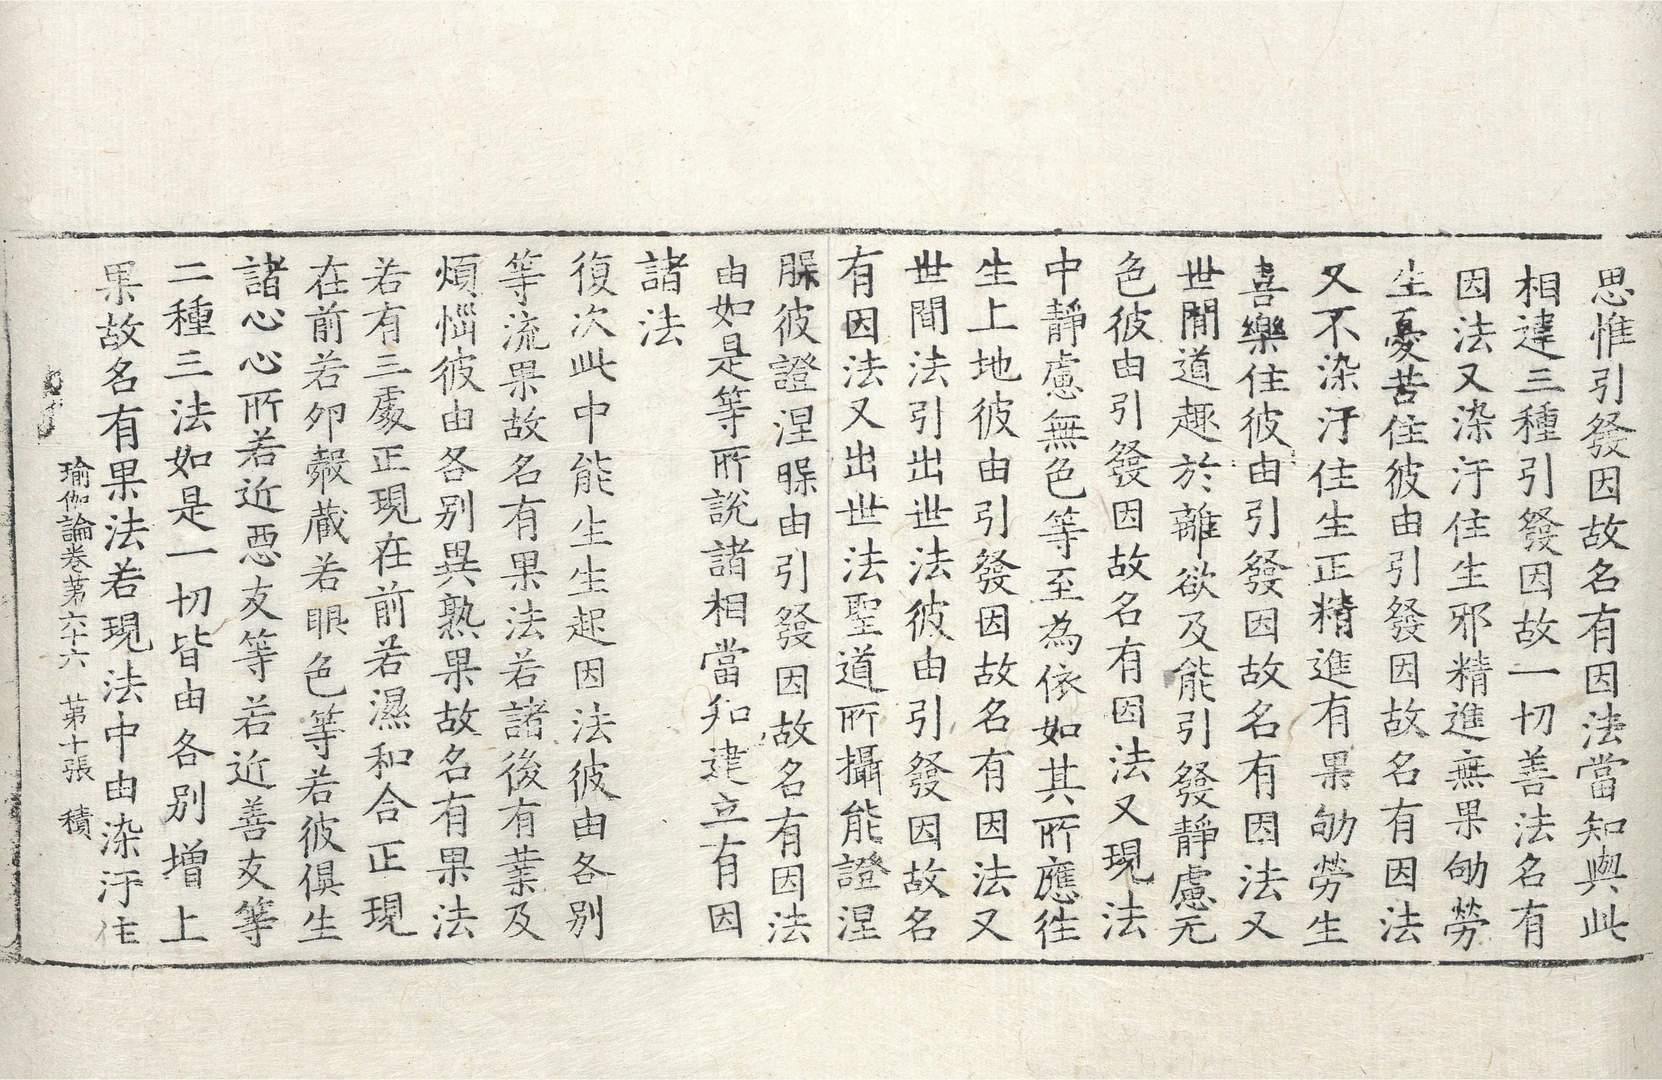 思惟引發因故名有因法當知與此
相違三種引發因故一切善法名有
因法又染汙住生邪精進無果劬勞
生憂苦住彼由引發因故名有因法
又不染汙住生正精進有果劬勞生
喜樂住彼由引發因故名有因法又
世間道趣於離欲及能引發靜慮无
色彼由引發因故名有因法又現法
中靜慮無色等至為依如其所應往
生上地彼由引發因故名有因法又
世間法引出世法彼由引發因故名
有因法又出世法聖道所攝能證涅
槃彼證涅槃由引發因故名有因法
由如是等所說諸相當知建立有因
諸法
復次此中能生生起因法彼由各別
等流果故名有果法若諸後有業及
煩惱彼由各別異熟果故名有果法
若有三處正現在前若濕和合正現
在前若卵㲉藏若眼色等若彼俱生
諸心心所若近惡友等若近善友等
二種三法如是一切皆由各別增上
果故名有果法若現法中由染汙住
瑜伽論卷第六十六 第十張 積